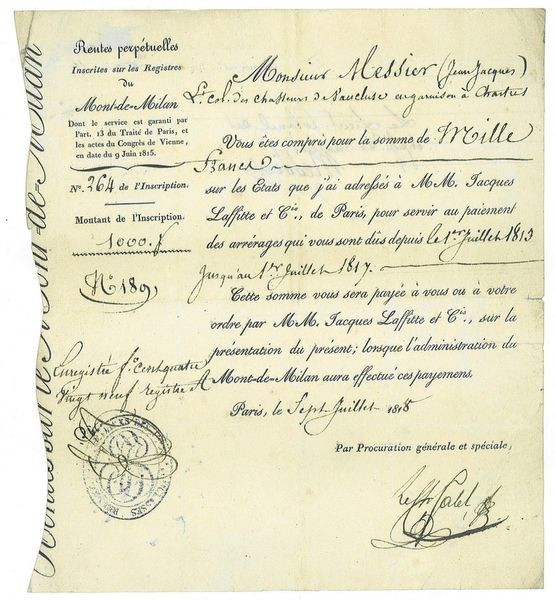 Rentes perpétuelles
Inscrites sur les Registres
du
Mont-de-Milan
Dont le service est garanti par
l'art. 13 du Traité de Paris, et
les actes du Congrès de Vienne,
en date du 9 Juin 1815.
N.º 264 de l'Inscription.
Montant de l'Inscription.
1000. f
Nº 189
Enregistré fº Cent quatre
Vingt neuf registre A
Monsieur Messier (Jean Jacques)
Lt. Col. des Chasseurs de Vaucluse en garnison à Chartres
Vous êtes compris pour la somme de Mille
Francs
sur les Etats que j'ai adressés à MM. Jacques
Laffitte et Cie., de Paris, pour servir au paiement
des arrérages qui vous sont dûs depuis le 1er Juillet 1813
Jusqu'au 1er Juillet 1817.
Cette somme vous sera payée à vous ou à votre
ordre par MM. Jacques Laffitte et Cie., sur la
présentation du présent; lorsque l'administration du
Mont-de-Milan aura effectué ces payemens.
Paris, le Sept Juillet 1818
Par Procuration générale et spéciale,
Mont-de-Milan